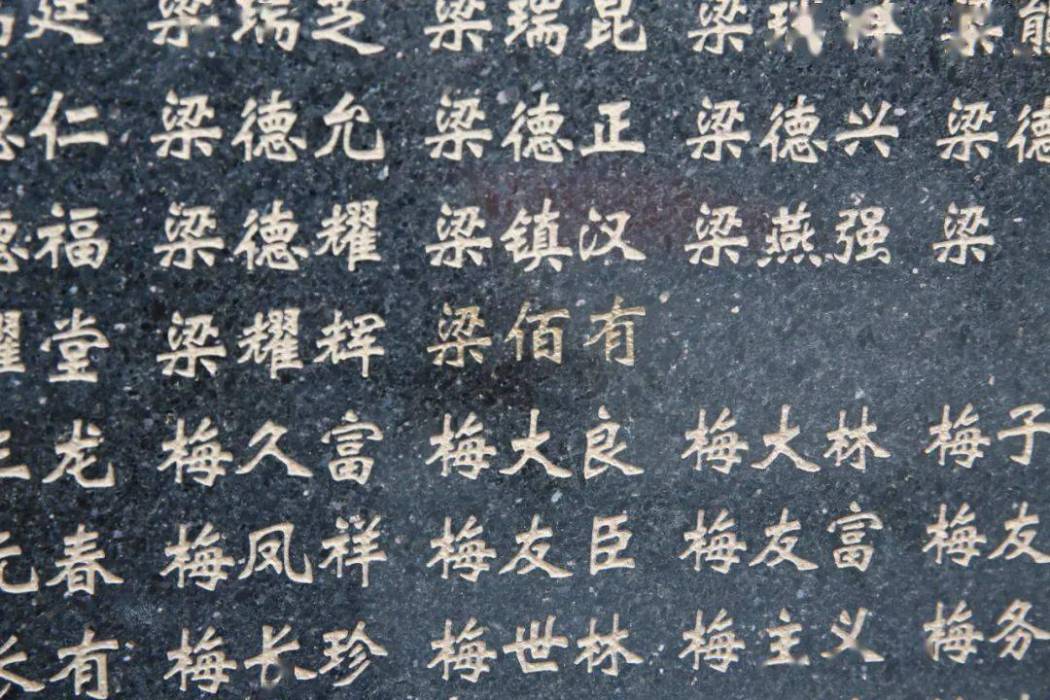 廷 梁瑞芝 梁瑞昆 梁瑞祥 梁能
德仁 梁德允 梁德正 梁德兴 梁德
德福 梁德耀 梁镇汉 梁燕强 梁
耀堂 梁耀辉 梁佰有
龙 梅久富 梅大良 梅大林 梅子
元春 梅凤祥 梅友臣 梅友富 梅友
长有 梅长珍 梅世林 梅主义 梅务